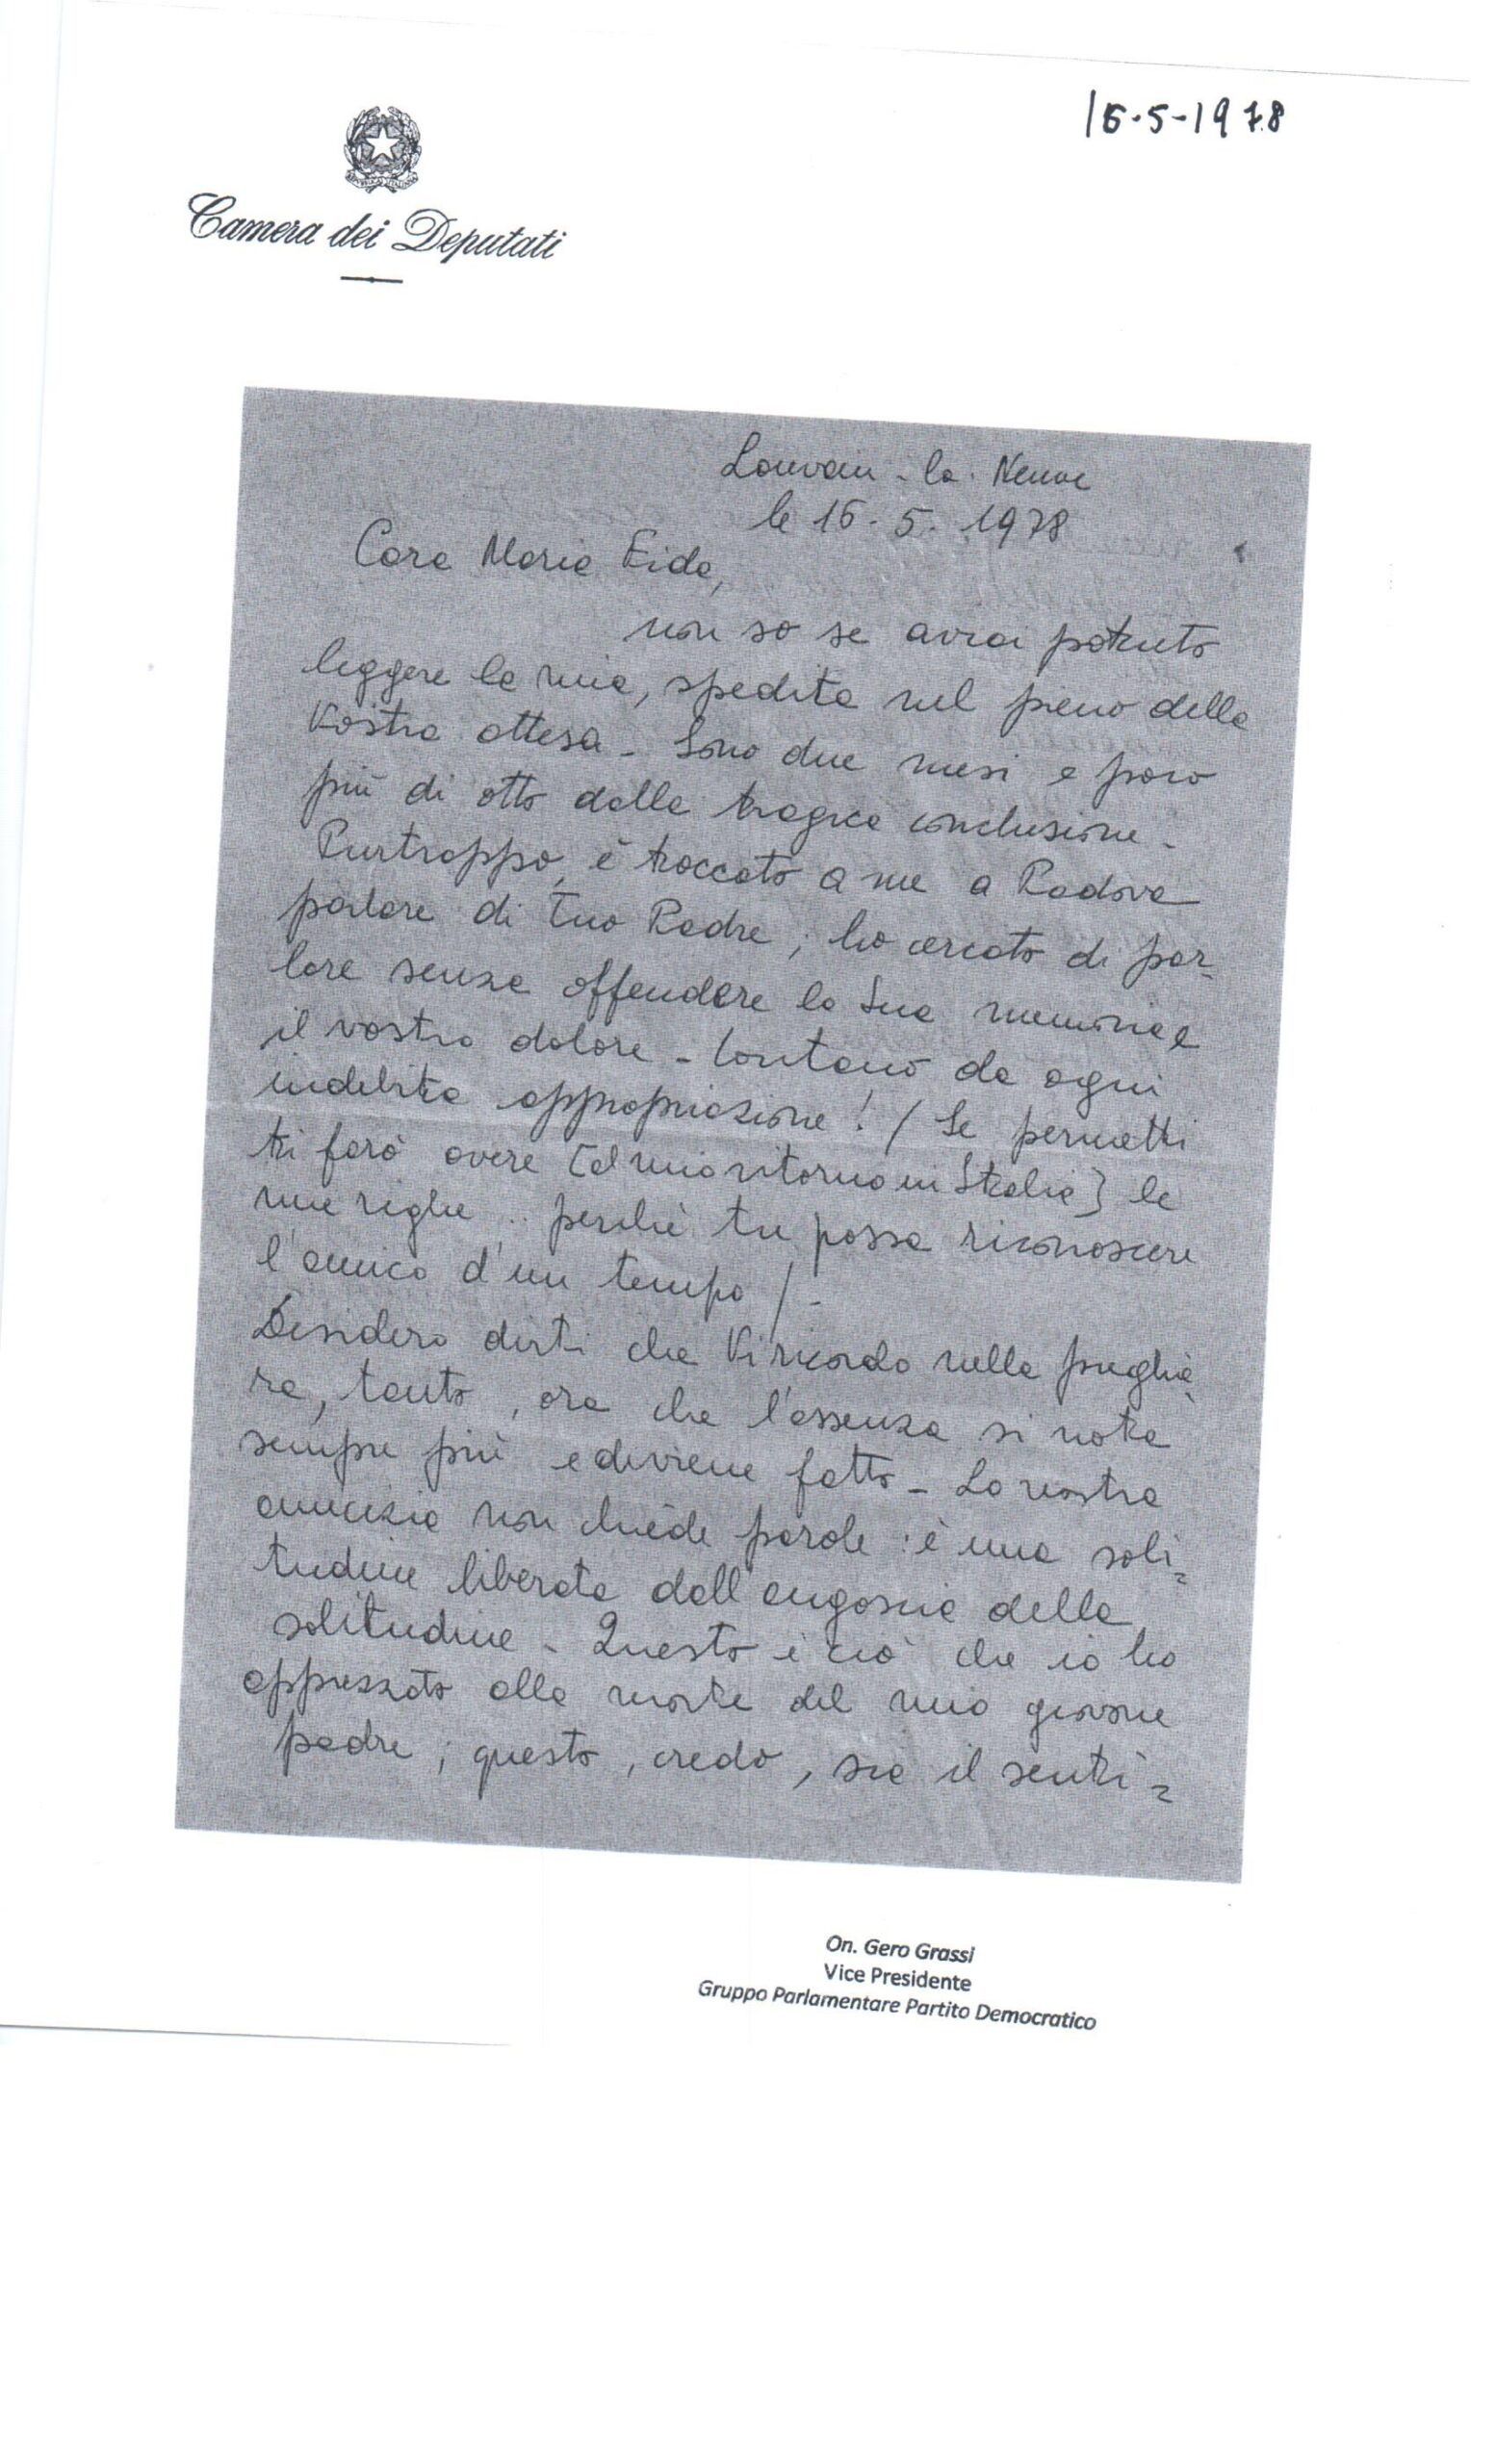 16-5-1978
Camera dei Deputati
Louvain-la-Neuve
le 16-5-1978
Cara Maria Fida,
non so se avrai potuto
leggere la mia, spedita nel pieno della
Vostra attesa - Sono due mesi e poco
più di otto dalla tragica conclusione -
Purtroppo, è toccato a me a Padova
parlare di tuo Padre; ho cercato di par-
lare senza offendere la Sua memoria e
il vostro dolore - lontano da ogni
indebita appropriazione! / Se permetti
ti farò avere [al mio ritorno in Italia] le
mie righe .. perché tu possa riconoscere
l'amico d'un tempo / -
Desidero dirti che Vi ricordo nella preghie-
ra, tanto, ora che l'assenza si nota
sempre più e diviene fatto - La nostra
amicizia non chiede parole: è una soli=
tudine liberata dall'angoscia della
solitudine - Questo è ciò che io ho
apprezzato alla morte del mio giovane
padre; questo, credo, sia il senti=
On. Gero Grassi
Vice Presidente
Gruppo Parlamentare Partito Democratico